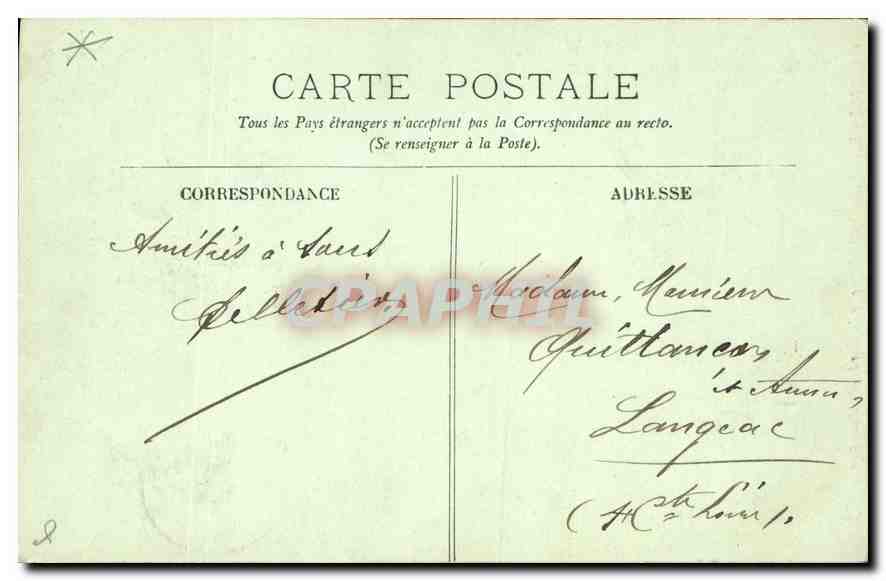 CARTE POSTALE
Tous les Pays étrangers n'acceptent pas la Correspondance au recto.
(Se renseigner à la Poste).
CORRESPONDANCE
ADRESSE
Amitiés à tous
Pelletier
CPAPHIL
Madame, Monsieur
Quittances
Langeac
(Hte Loire).